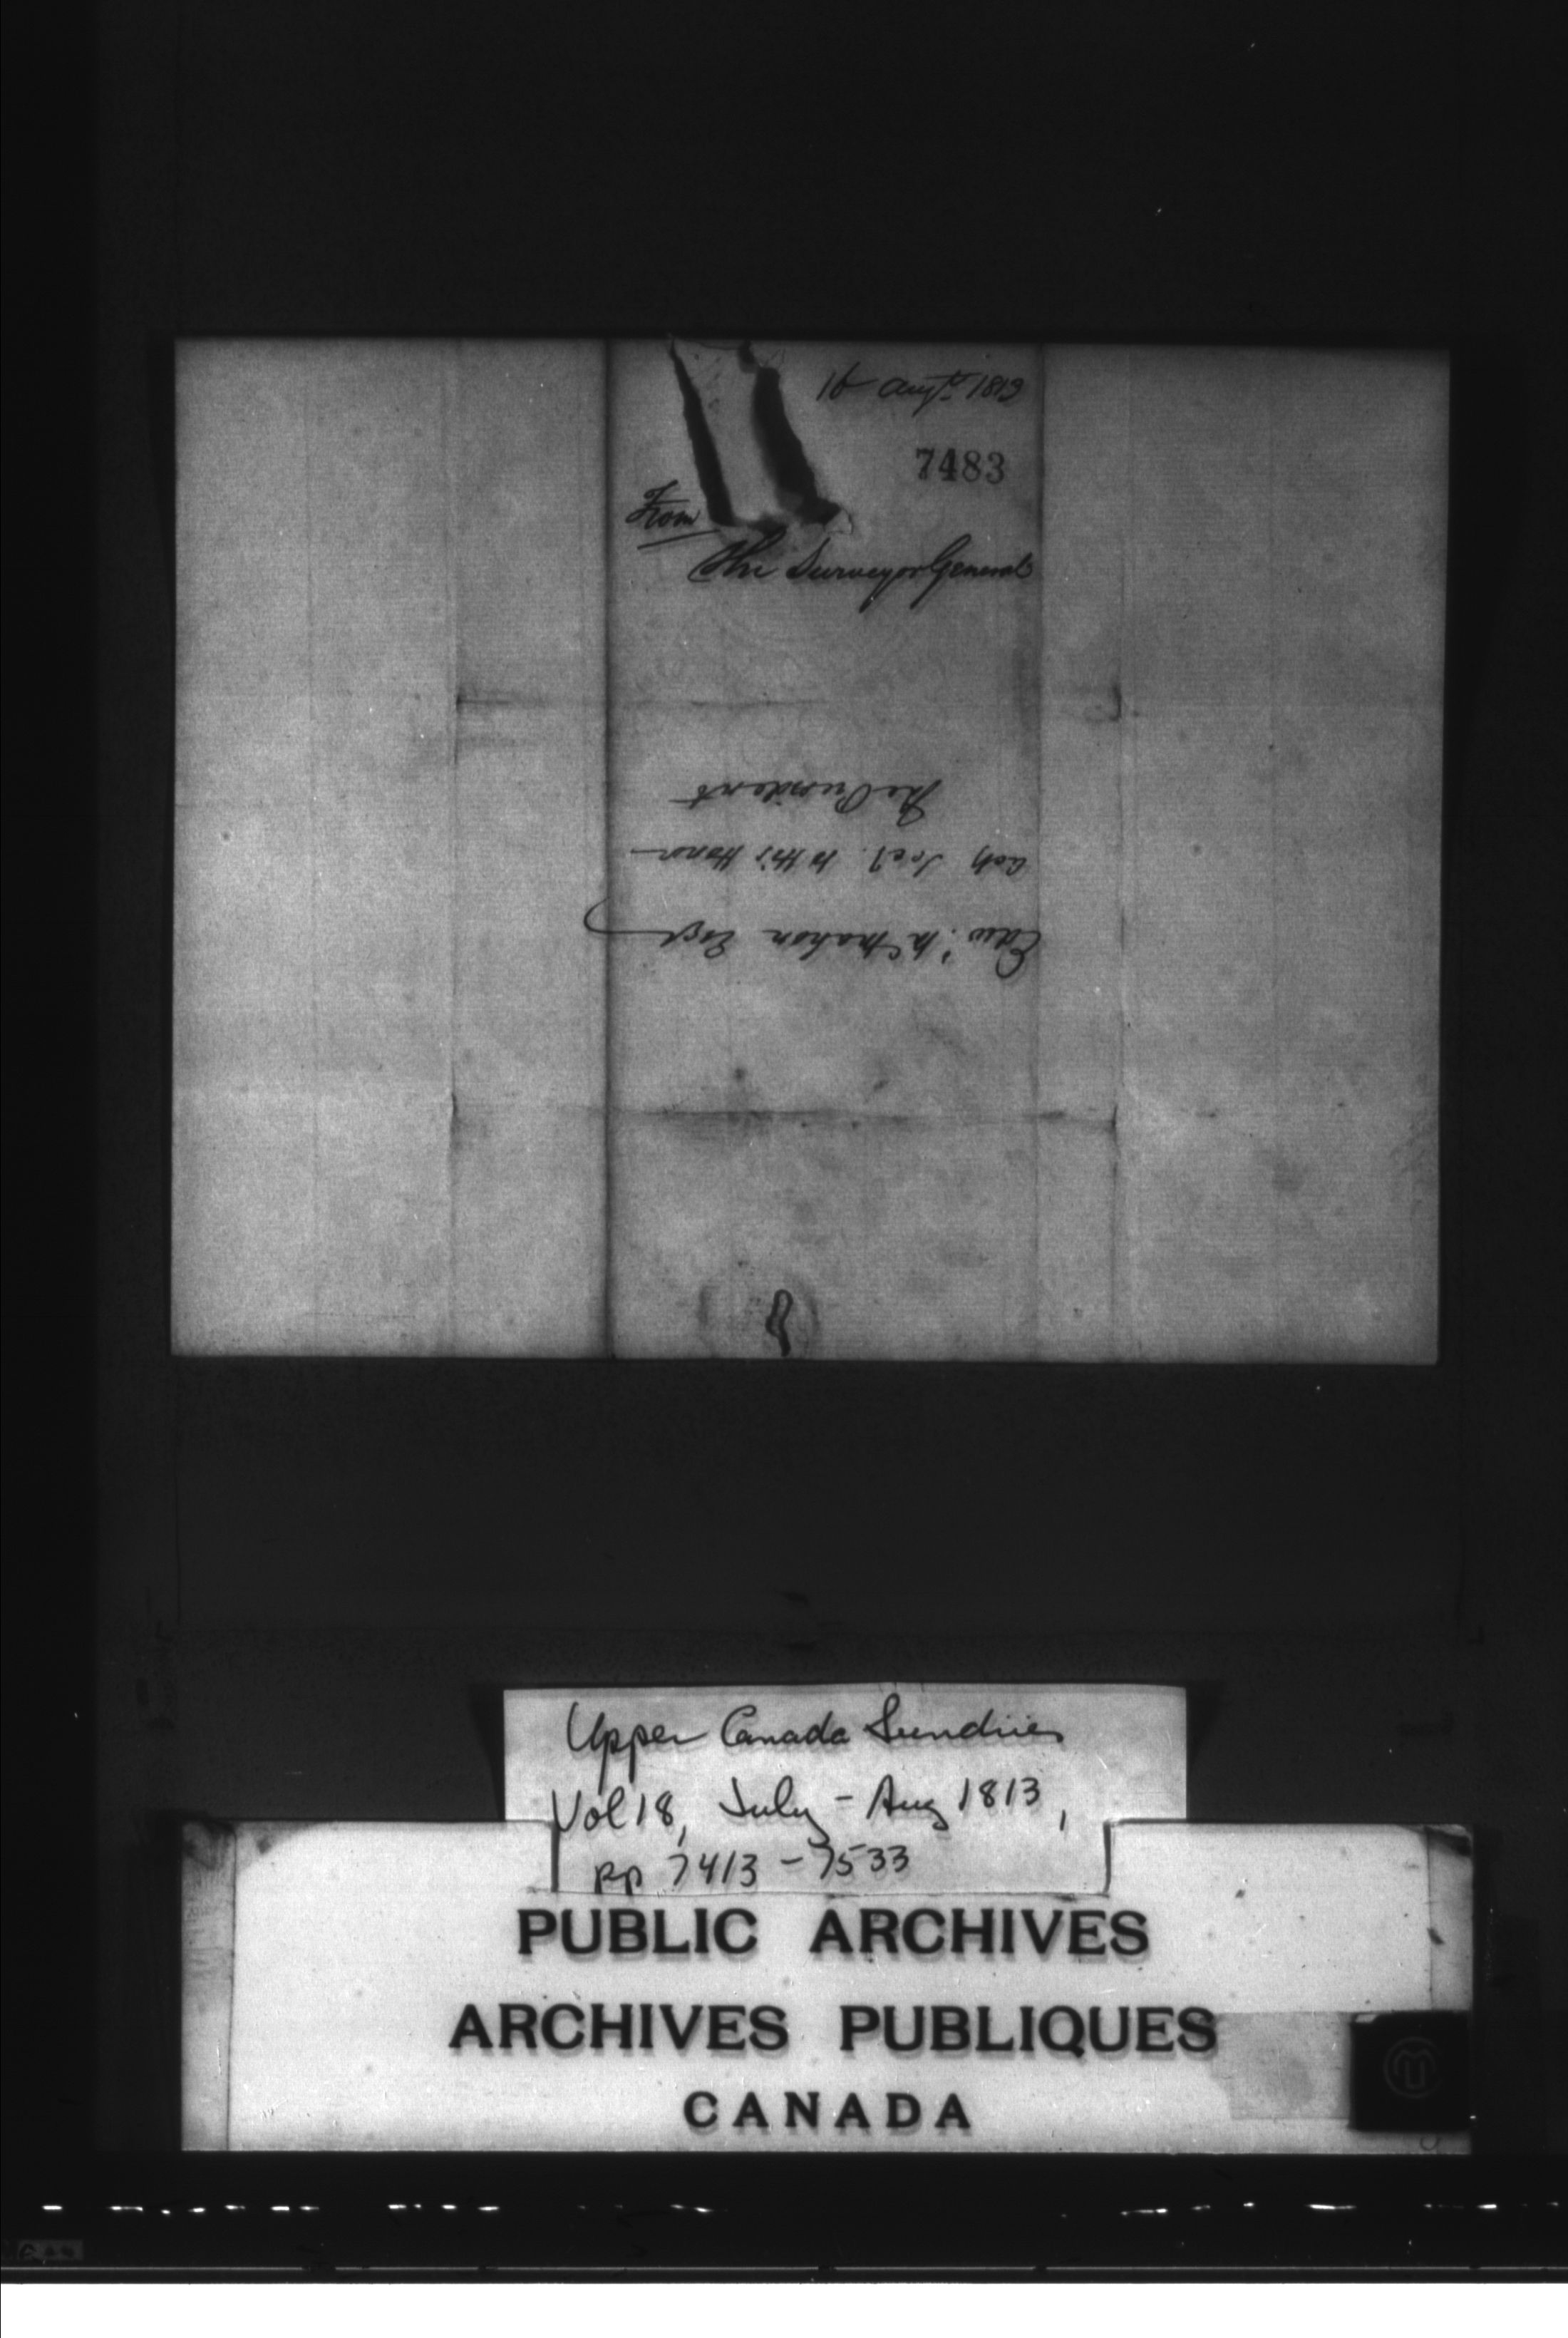 16 Augt 1813
7483
From
The Surveyor General
Edwd. McMahon Esqr
actg Secy. to His Honor
The President
Upper Canada Sundries
Vol 18, July - Aug 1813,
pp 7413 - 7533
PUBLIC ARCHIVES
ARCHIVES PUBLIQUES
CANADA